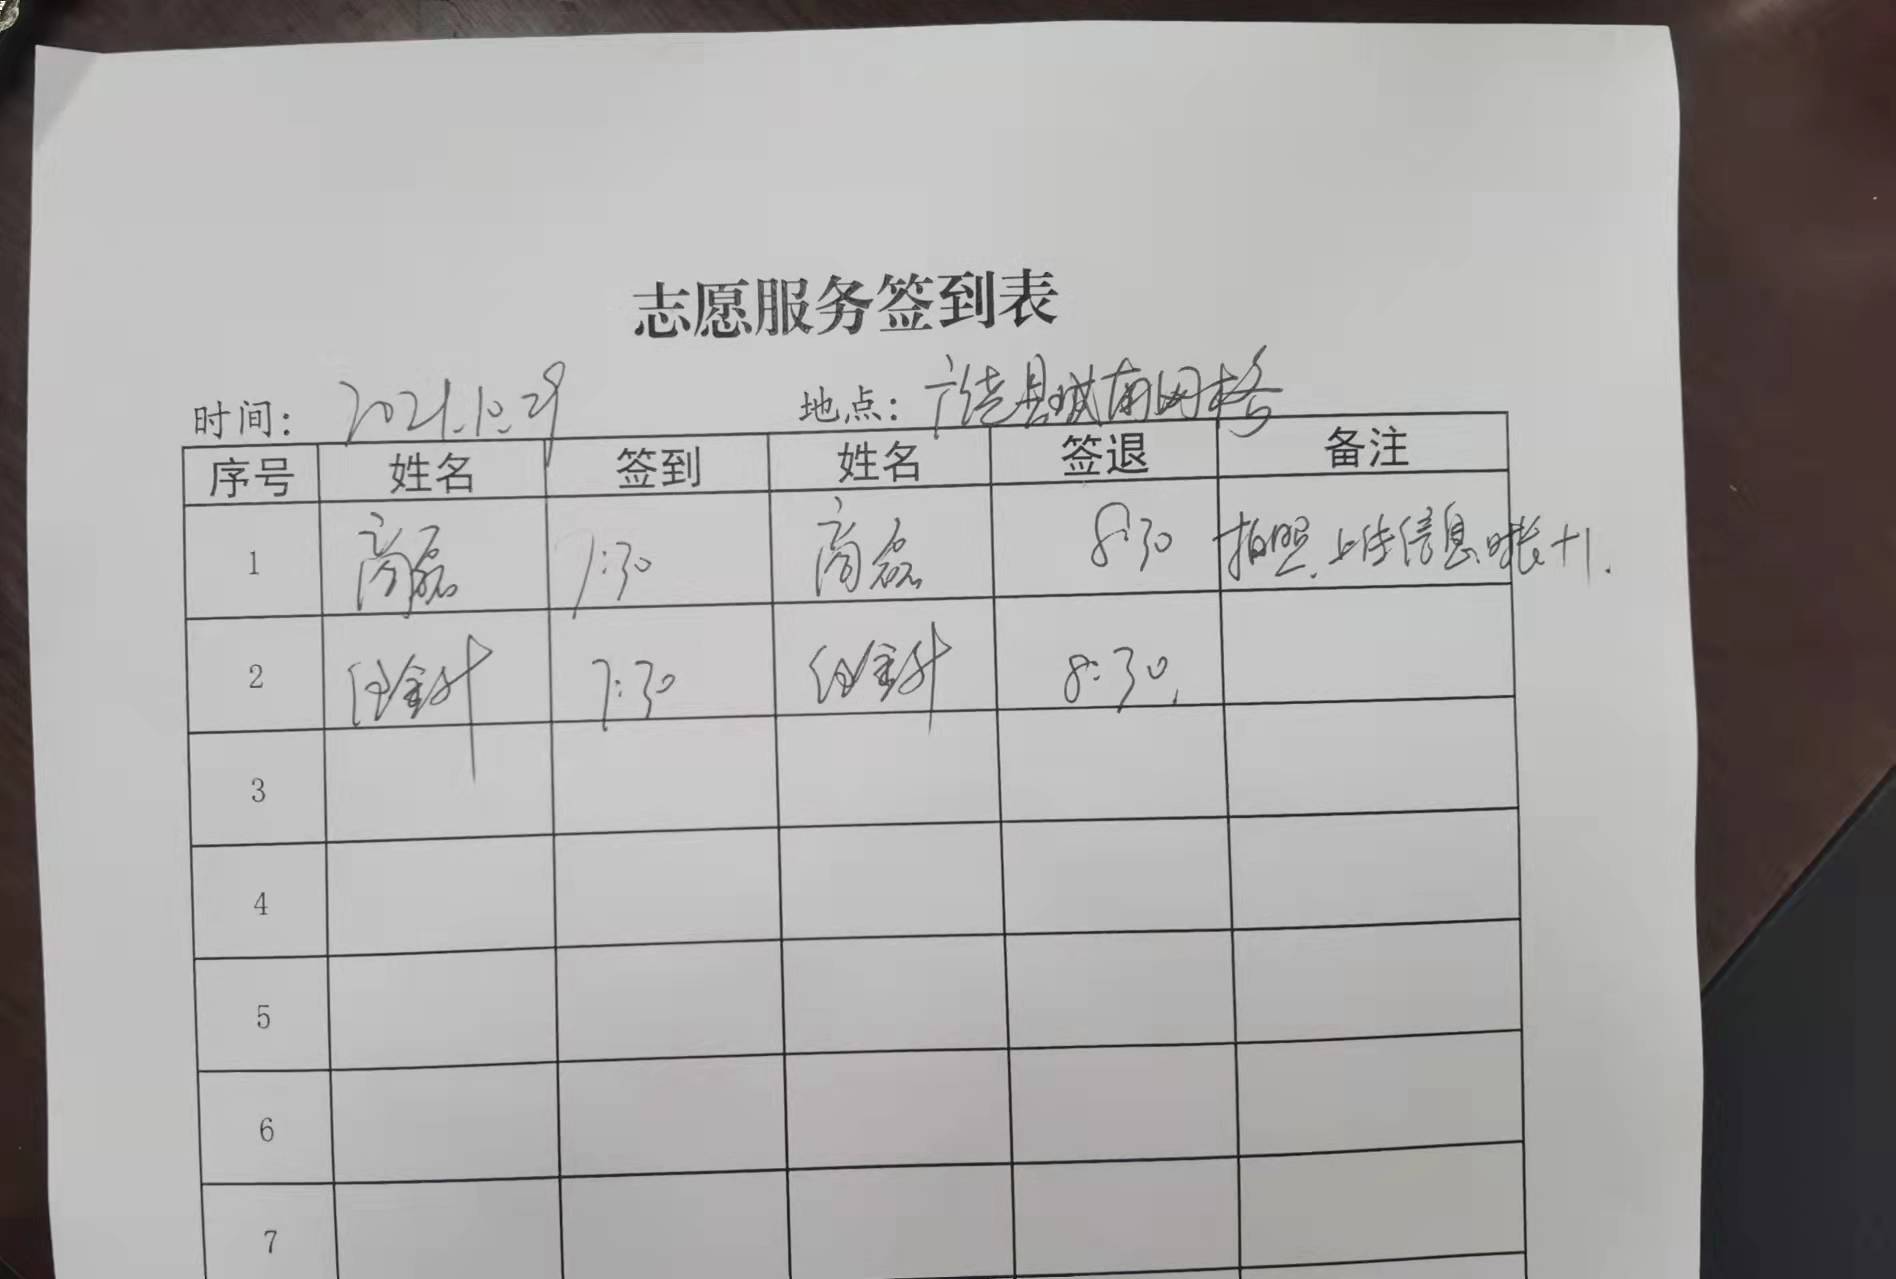 志愿服务签到表
时间: 2021.10.29 地点: 广饶县城南网格
序号 姓名 签到 姓名 签退 备注
1 商磊 7:30 商磊 8:30 拍照.上传信息时长+1.
2 任金升 7:30 任金升 8:30.
3
4
5
6
7